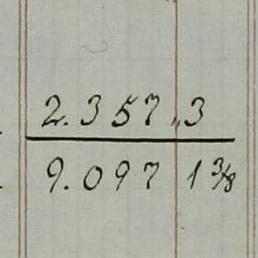 2.357,,3
9.097 1 3/8